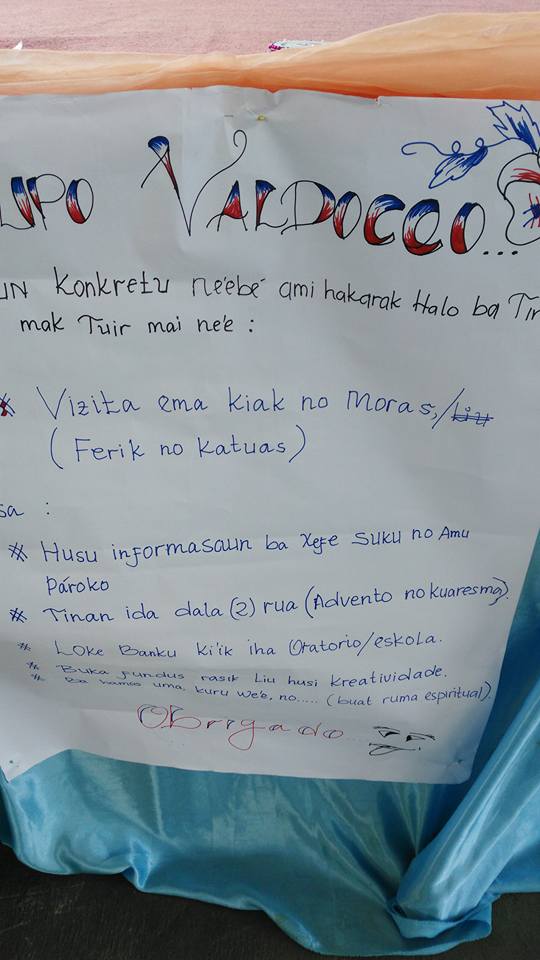 UPO VALDOCCO...
UN Konkretu ne'ebé ami hakarak Halo ba Tin
mak Tuir mai ne'e :
* Vizita ema kiak no Moras,/
(Ferik no Katuas)
sa :
* Husu informasaun ba Xefe Suku no Amu
Pároko
* Tinan ida dala (2) rua (Advento no kuaresma).
* Loke Banku ki'ik iha Oratorio/eskola.
* Buka fundus rasik Liu husi kreatividade.
* Ba hamos uma, kuru we'e, no.... (buat ruma espiritual).
OBrigado....